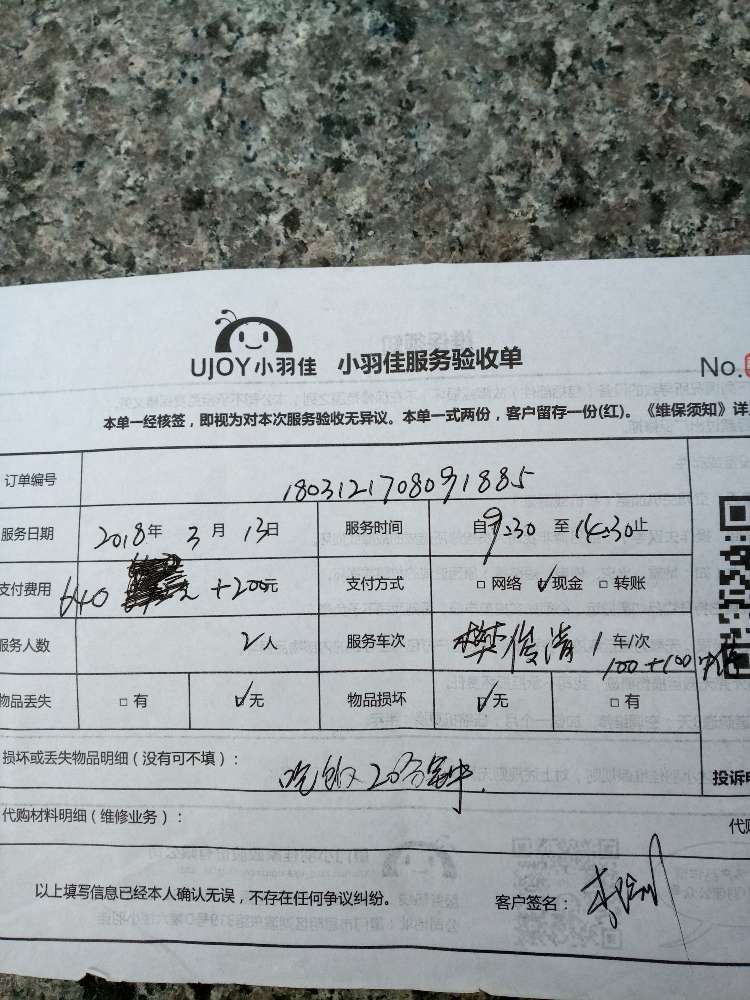 UJOY小羽佳 小羽佳服务验收单
No.
本单一经核签，即视为对本次服务验收无异议。本单一式两份，客户留存一份(红)。《维保须知》详
订单编号 1803121708091885
服务日期 2018年 3月 13日 服务时间 自9:30 至14:30止
支付费用 640 元 +200元 支付方式 □ 网络 ☑现金 □ 转账
服务人数 2人 服务车次 樊俊清 1 车/次
100+100
物品丢失 □ 有 ☑无 物品损坏 ☑无 □ 有
损坏或丢失物品明细（没有可不填）：
吃饭20分钟
投诉电
代购材料明细（维修业务）：
代购
以上填写信息已经本人确认无误，不存在任何争议纠纷。 客户签名：